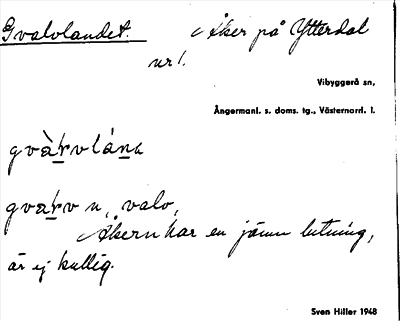 Gvalvlandet. Åker på Ytterdal
nr 1.
Vibyggerå sn,
Ångermanl. s. doms. tg., Västernorrl. l.
gvàrvlána
gvarv n, valv,
Åkern har en jämn lutning,
är ej kullig.
Sven Hiller 1948